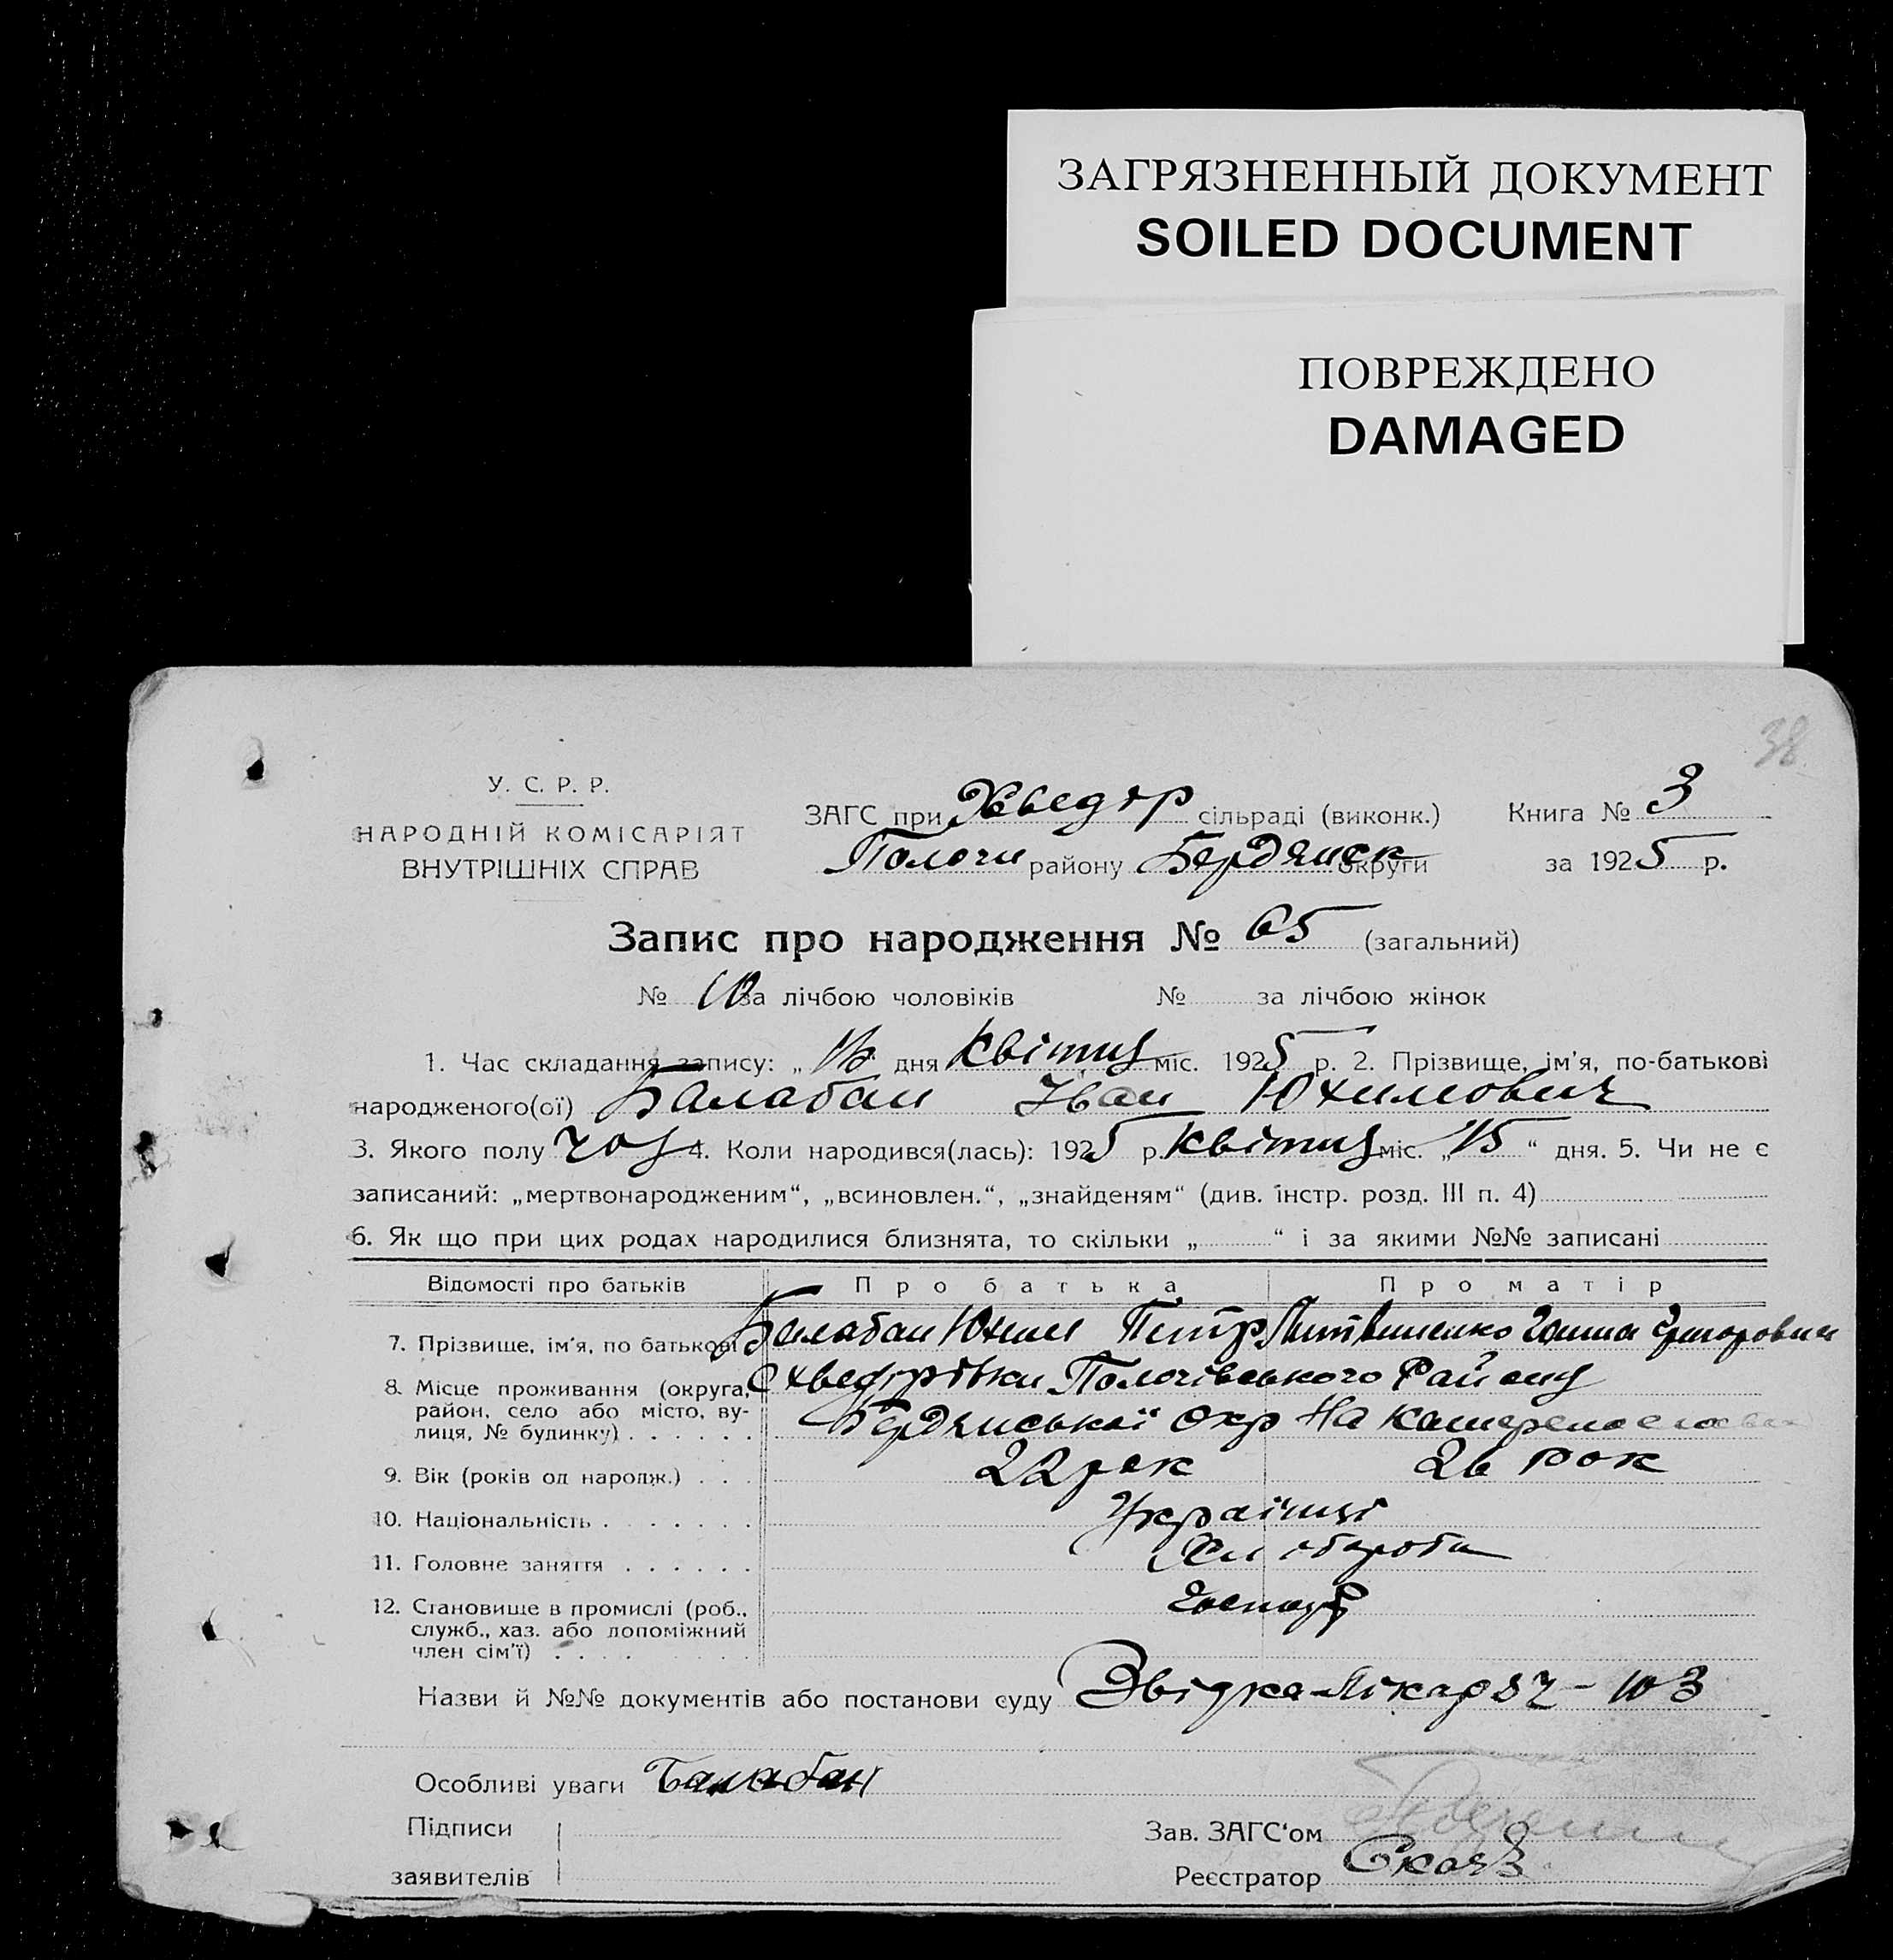 ЗАГРЯЗНЕННЫЙ ДОКУМЕНТ
SOILED DOCUMENT
ПОВРЕЖДЕНО
DAMAGED
38
У. С. Р. Р.
НАРОДНІЙ КОМІСАРІЯТ
ВНУТРІШНІХ СПРАВ
ЗАГС при Хведор сільраді (виконк.) Книга № 3
Пологи району Бердянск округи за 1925 р.
Запис про народження № 65 (загальний)
№ за лічбою чоловіків № за лічбою жінок
1. Час складання запису: „ дня Квітня міс. 1925 р. 2. Прізвище, ім'я, по-батькові
народженого(ої) Балабан Іван Юхимович
3. Якого полу чол 4. Коли народився(лась): 1925 р. Квітня міс. „15“ дня. 5. Чи не є
записаний: „мертвонародженим“, „всиновлен.“, „знайденям“ (див. інстр. розд. III п. 4)
6. Як що при цих родах народилися близнята, то скільки „ “ і за якими №№ записані
Відомості про батьків Про батька Про матір
7. Прізвище, ім'я, по батькові Балабан Юхим Петр Литвиненко Ганна Григоровна
8. Місце проживання (округа, с Хведорівки Пологівського Району
район, село або місто, вулиця, № будинку) Бердянської Окр На
9. Вік (років од народж.) 22 рок 26 рок
10. Національність Українці
11. Головне заняття Хлібороби
12. Становище в промислі (роб.,
служб., хаз. або допоміжний
член сім'ї)
Назви й №№ документів або постанови суду Звідка Лікаря
Особливі уваги Балабан
Підписи
заявителів
Зав. ЗАГС'ом
Реєстратор